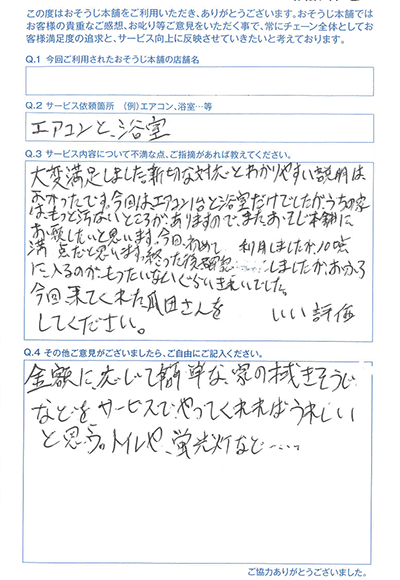 この度はおそうじ本舗をご利用いただき、ありがとうございます。おそうじ本舗では
お客様の貴重なご感想、お叱り等ご意見をいただく事で、常にチェーン全体としてお
客様満足度の追求と、サービス向上に反映させていきたいと考えております。
Q.1 今回ご利用されたおそうじ本舗の店舗名
Q.2 サービス依頼箇所 (例)エアコン、浴室…等
エアコンと、浴室
Q.3 サービス内容について不満な点、ご指摘があれば教えてください。
大変満足しました。親切な対応とわかりやすい説明は
よかったです。今回はエアコン1台と浴室だけでしたが、うちの家
はもっと汚ないところがありますので、またおそうじ本舗に
お願いしたいと思います。今日、初めて利用しましたが、100点
満点だと思います。終った後確認しましたが、お風ろ
に入るのが、もったいないぐらいきれいでした。
今回来てくれた爪田さんを いい評価
してください。
Q.4 その他ご意見がございましたら、ご自由にご記入ください。
金額に応じて簡単な家の拭きそうじ
などをサービスでやってくれればうれしい
と思う。トイレや、蛍光灯など……
ご協力ありがとうございました。